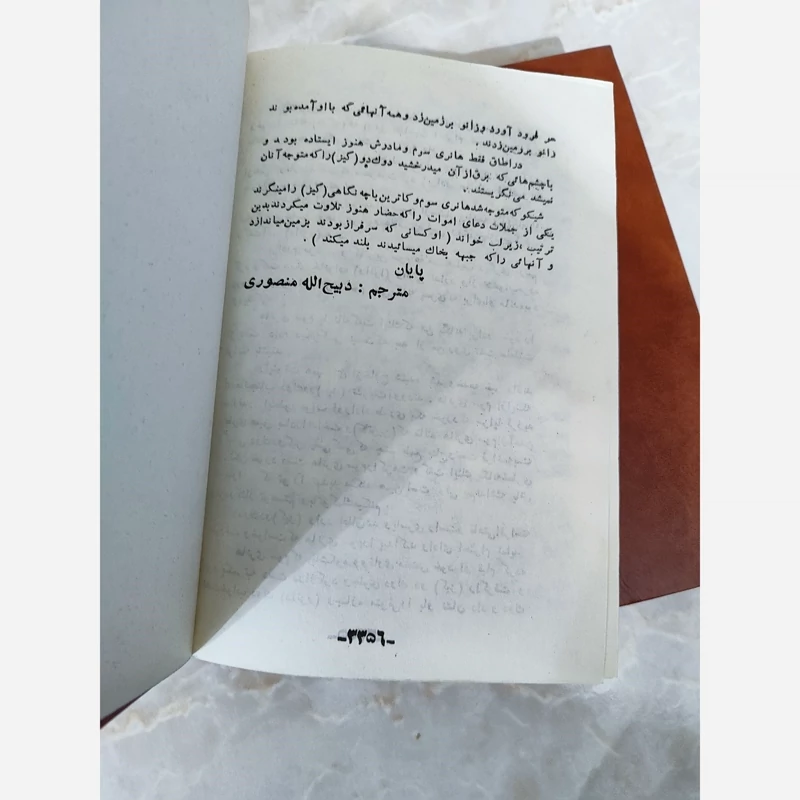 سر فرود آورد وزانو برزمین‌زد وهمه آنهائی‌که بااوآمده‌بو ند
زانو برزمین‌زدند .
دراطاق فقط هانری سرم ومادرش هنوز ایستاده بودند و
باچشم‌هائی‌که برق‌ازآن میدرخشید دوك‌دو(گیز)راکه‌متوجه‌آنان
نمیشد می‌نگریستند .
شیکو که‌متوجه‌شدهانری سوم‌وکاترین‌باچه‌نگاهی(گیز) رامینگرند
یکی از جملات دعای اموات راکه‌حضار هنوز تلاوت میکردندبدین
ترتیب ،زیرلب خواند ( اوکسانی که سرفرازبودند بزمین‌میاندازد
و آنهائی راکه جبهه بخاك میسائیدند بلند میکند ) .
پایان
مترجم : دبیح‌الله منصوری
-۳۳۵۶-